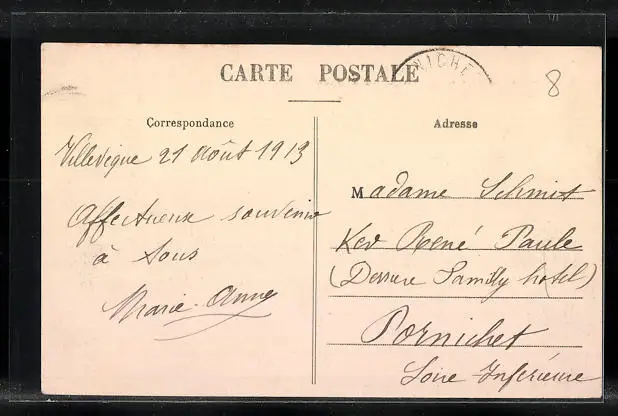 CARTE POSTALE
NICHE
8
Correspondance
Adresse
Villevêque 21 août 1913
Affectueux souvenir
à tous
Marie-Anne
Madame Schmit
Ker René Paule
(Derrière Family hotel)
Pornichet
Loire Inférieure